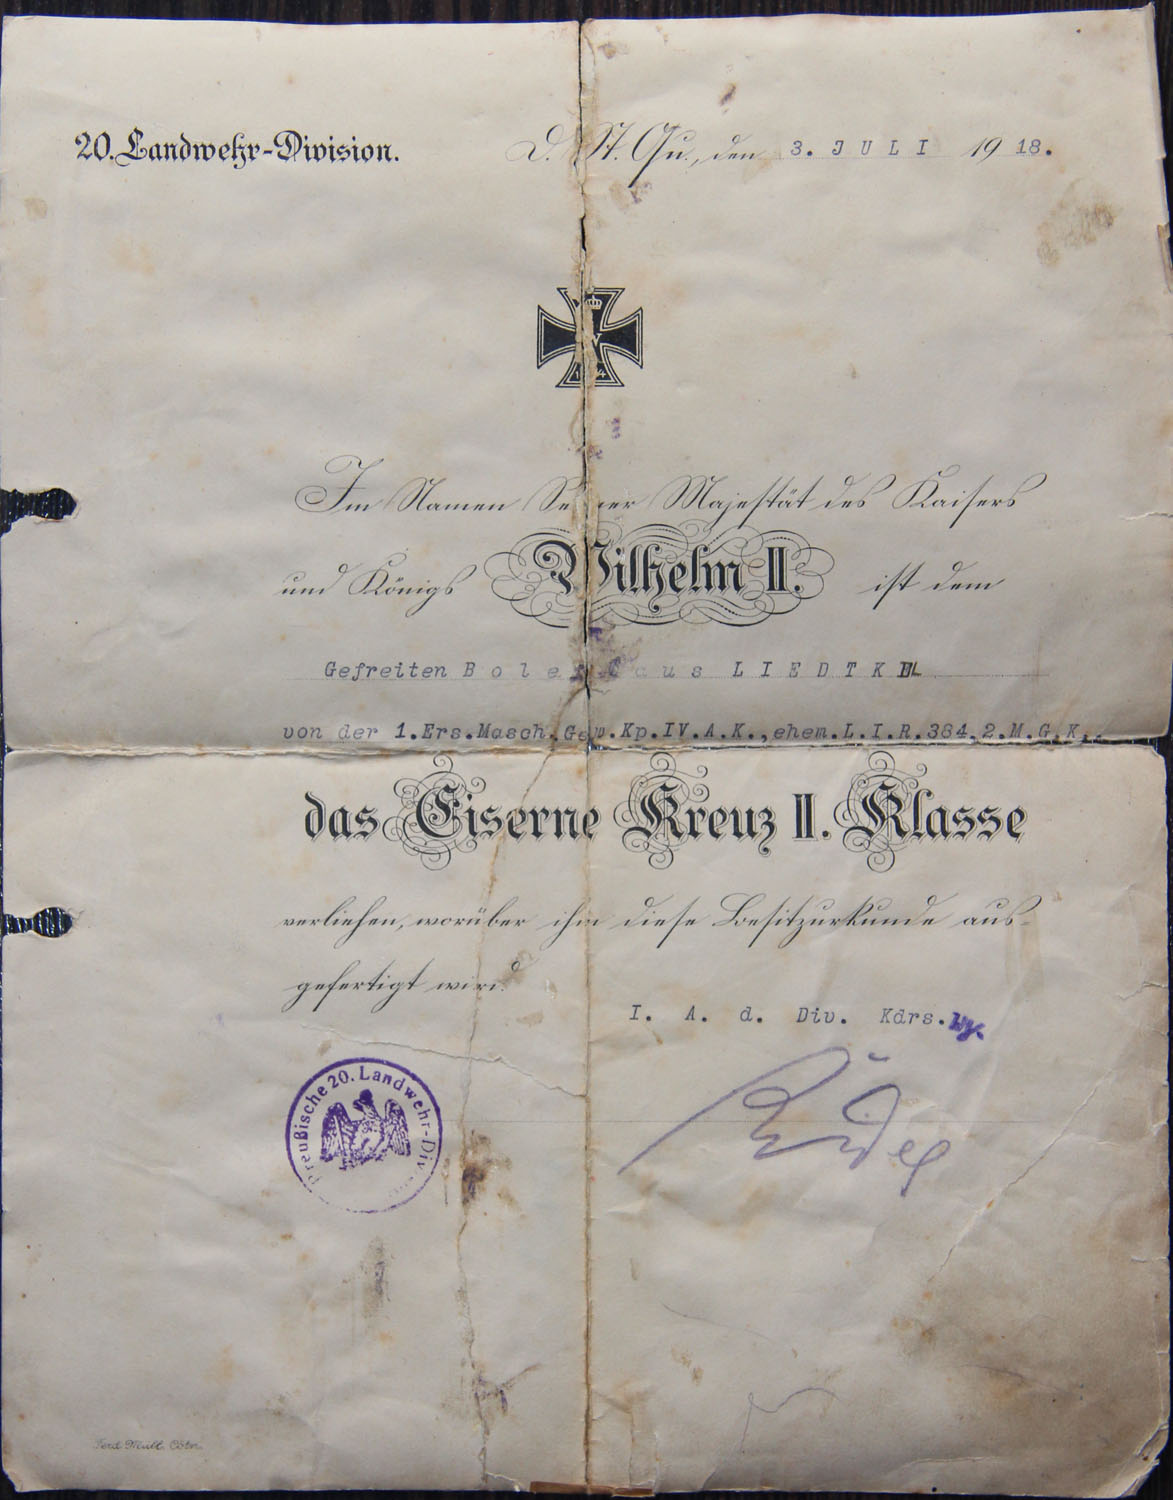 20. Landwehr-Division.
D. St. Qu., den 3. JULI 1918.
W
1914
Im Namen Seiner Majestät des Kaisers
und Königs Wilhelm II. ist dem
Gefreiten aus
von der 1.Ers.Masch.Gew.Kp.IV.A.K.,ehem.L.I.R.384.2.M.G.K.,
das Eiserne Kreuz II. Klasse
verliehen, worüber ihm diese Besitzurkunde aus-
gefertigt wird.
I. A. d. Div. Kdrs.
Preußische 20. Landwehr-Division